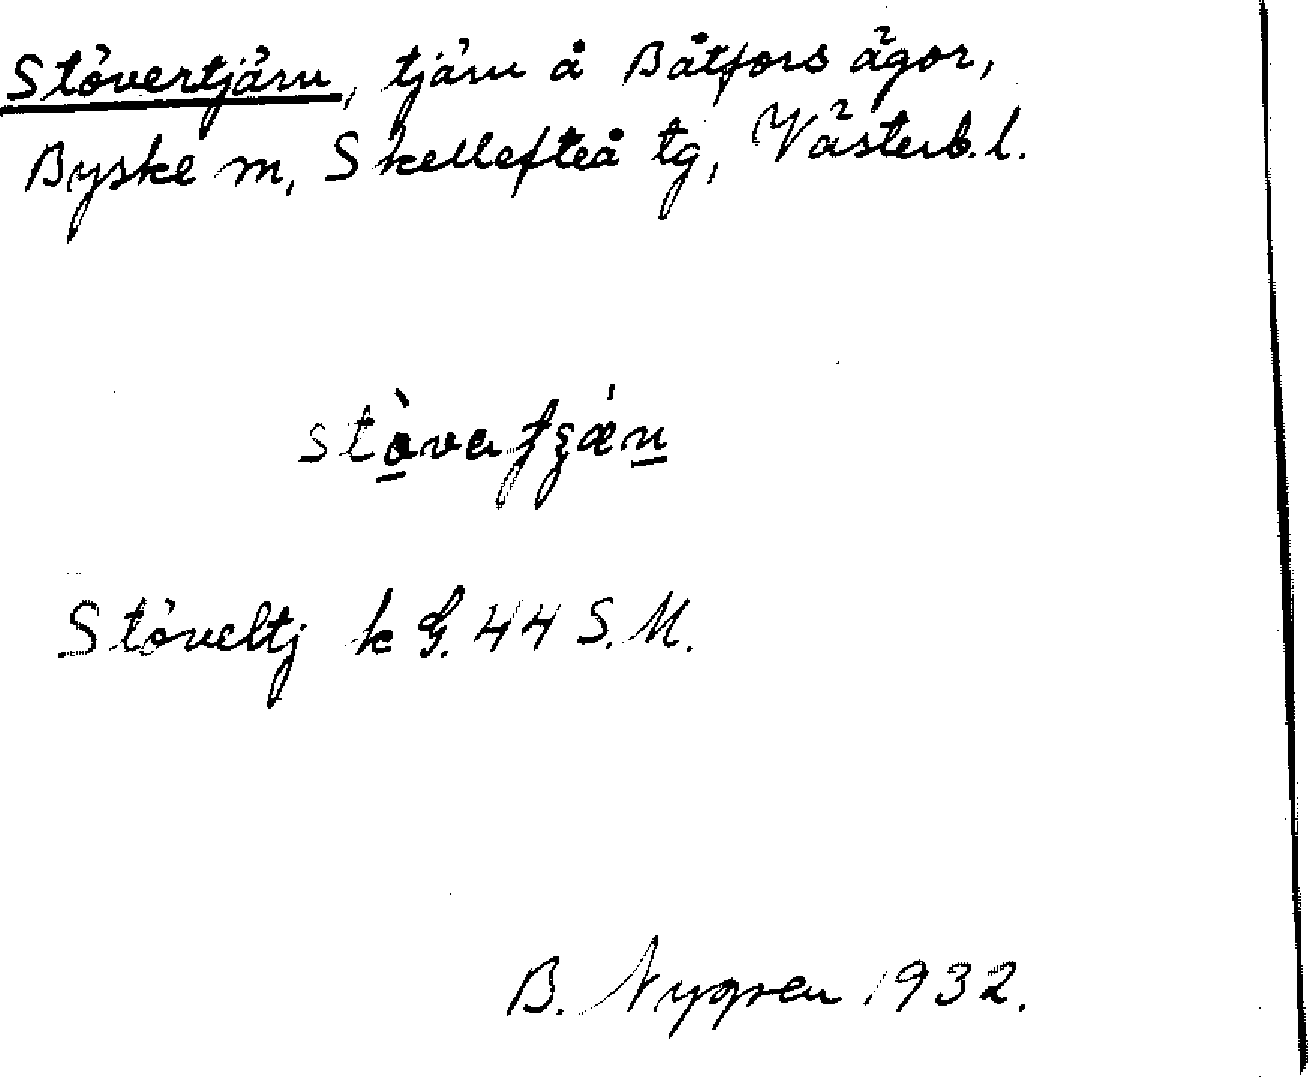 Stövertjärn, tjärn å Båtfors ägor,
Byske sn, Skellefteå tg, Västerb. l.
Stöveltj k G. 44 S. M.
B. Nygren 1932.